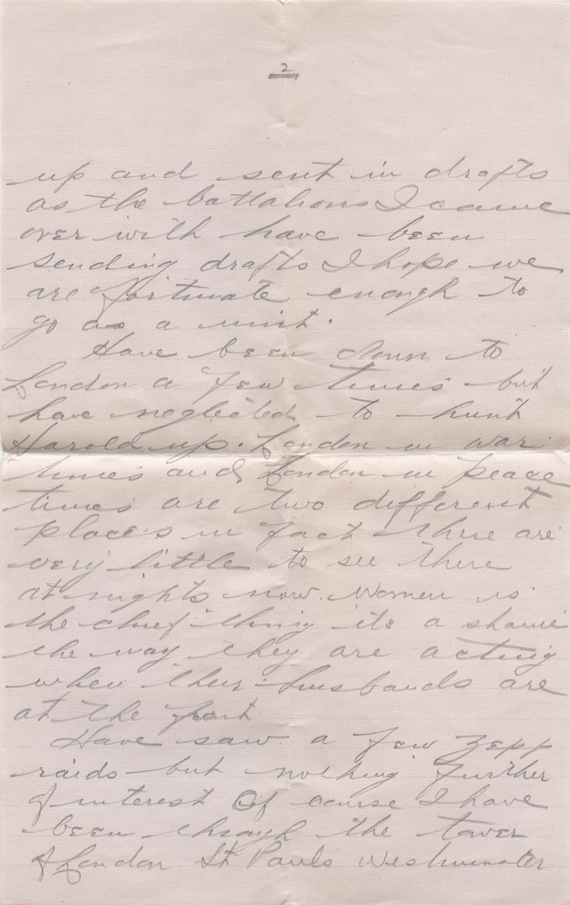 2
up and sent in drafts
as the battalions I came
over with have been
sending drafts I hope we
are fortunate enough to
go as a unit.
Have been down to
London a few times but
have neglected to hunt
Harold up. London in war
times and London in peace
times are two different
places in fact there are
very little to see there
at nights now. Women is
the chief thing its a shame
the way they are acting
when their husbands are
at the front
Have saw a few Zepp
raids but nothing further
of interest Of course I have
been through the tower
of London St Pauls Westminster